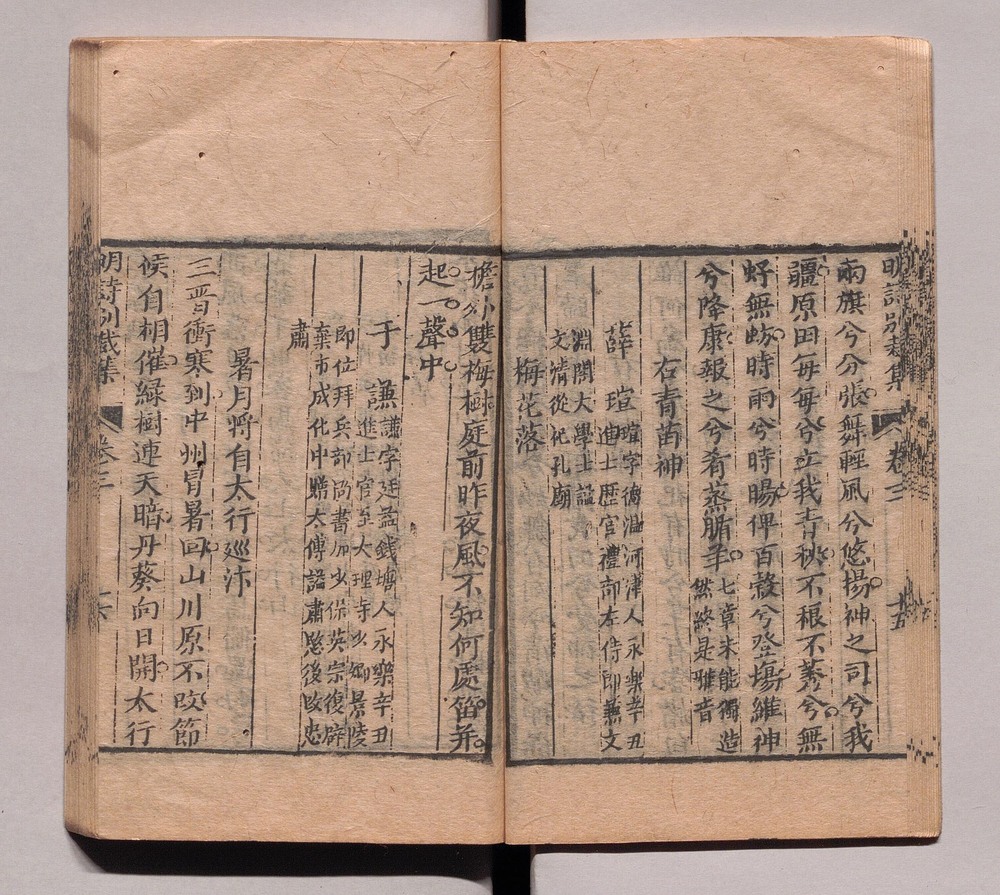 明詩別裁集 卷三 十五
兩旗兮分張舞輕風兮悠揚神之司兮我
疆原田每每兮立我青秧不稂不莠兮無
蜉無蝣時雨兮時暘俾百穀兮登塲維神
兮降康報之兮肴蒸腯羊七章未能獨造
然終是雅音
右青苗神
薛瑄瑄字德溫河津人永樂辛丑
進士歷官禮部左侍郎兼文
淵閣大學士諡
文清從祀孔廟
梅花落
檐外雙梅樹庭前昨夜風不知何處笛并
起一聲中
于謙謙字廷益錢塘人永樂辛丑
進士官至大理寺少卿景陵
即位拜兵部尚書加少保英宗復辟
棄市成化中贈太傅諡肅愍後改忠
肅
暑月將自太行巡汴
三晉衝寒到中州冒暑回山川原不改節
候自相催綠樹連天暗丹葵向日開太行
明詩別裁集 卷三 十六